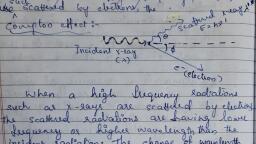 are scattered by electrons, the
Compton effect:-
scattered
E=hν'
θ
ϕ
Incident x-ray
(λ)
e⁻(electron)
When a high frequency radiations
such as x-rays are scattered by electron
the scattered radiations are having lower
frequency or higher wavelength than the
incident radiations. The change of wavelength